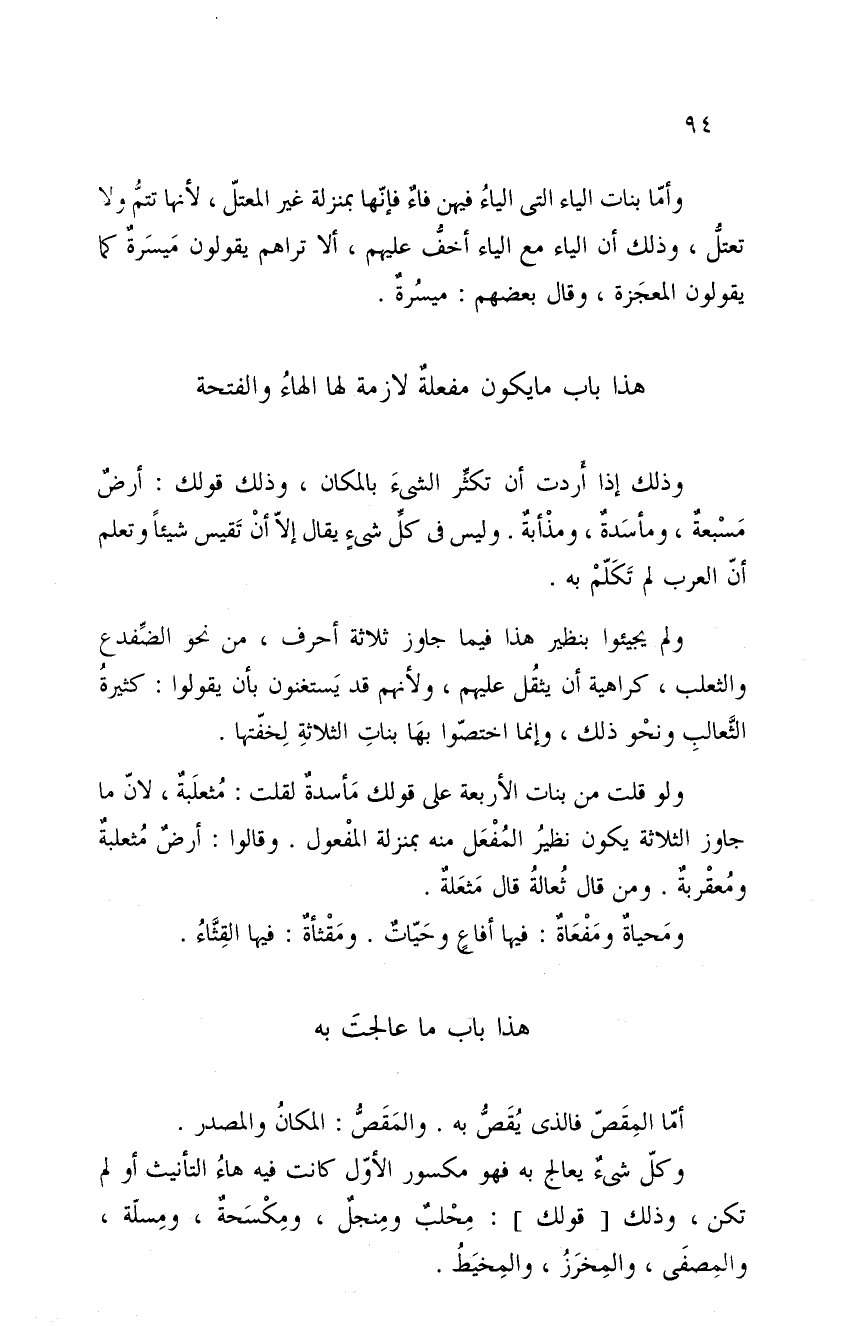 ٩٤
وأمّا بنات الياء التى الياءُ فيهن فاءٌ فإنّها بمنزلة غير المعتلّ ، لأنها تتمُّ ولا
تعتلُّ ، وذلك أن الياء مع الياء أخفُّ عليهم ، ألا تراهم يقولون مَيسَرةٌ كما
يقولون المعجَزة ، وقال بعضهم : ميسُرةٌ .
هذا باب مايكون مفعلةٌ لازمة لها الهاءُ والفتحة
وذلك إذا أَردت أن تكثِّر الشىءَ بالمكان ، وذلك قولك : أرضٌ
مَسْبعةٌ ، ومأسَدةٌ ، ومذْأبةٌ . وليس فى كلِّ شىءٍ يقال إلاّ أنْ تَقيس شيئاً وتعلم
أنّ العرب لم تَكَلّمْ به .
ولم يجيئوا بنظير هذا فيما جاوز ثلاثة أحرف ، من نحو الضِّفدع
والثعلب ، كراهية أن يثقُل عليهم ، ولأنهم قد يَستغنون بأن يقولوا : كثيرةُ
الثَّعالبِ ونحْو ذلك ، وإنما اختصّوا بهَا بناتِ الثلاثةِ لِخفّتها .
ولو قلت من بنات الأربعة على قولك مَأسدةٌ لقلت : مُثعلَبةٌ ، لانّ ما
جاوز الثلاثة يكون نظيرُ المُفْعَل منه بمنزلة المفْعول . وقالوا : أرضٌ مُثعلبةٌ
ومُعقْربةٌ . ومن قال ثُعالةُ قال مَثعَلةٌ .
ومَحياةٌ ومَفْعَاةٌ : فيها أفاعٍ وحَيّاتٌ . ومَقْثأةٌ : فيها القِثَّاءُ .
هذا باب ما عالجتَ به
أمّا المِقَصّ فالذى يُقَصُّ به . والمَقَصُّ : المكانُ والمصدر .
وكلّ شىءٌ يعالج به فهو مكسور الأوّل كانت فيه هاءُ التأنيث أو لم
تكن ، وذلك [ قولك ] : مِحْلبٌ ومِنجلٌ ، ومِكْسَحةٌ ، ومِسلّة ،
والمِصفَى ، والمِخرَزُ ، والمِخيَطُ .